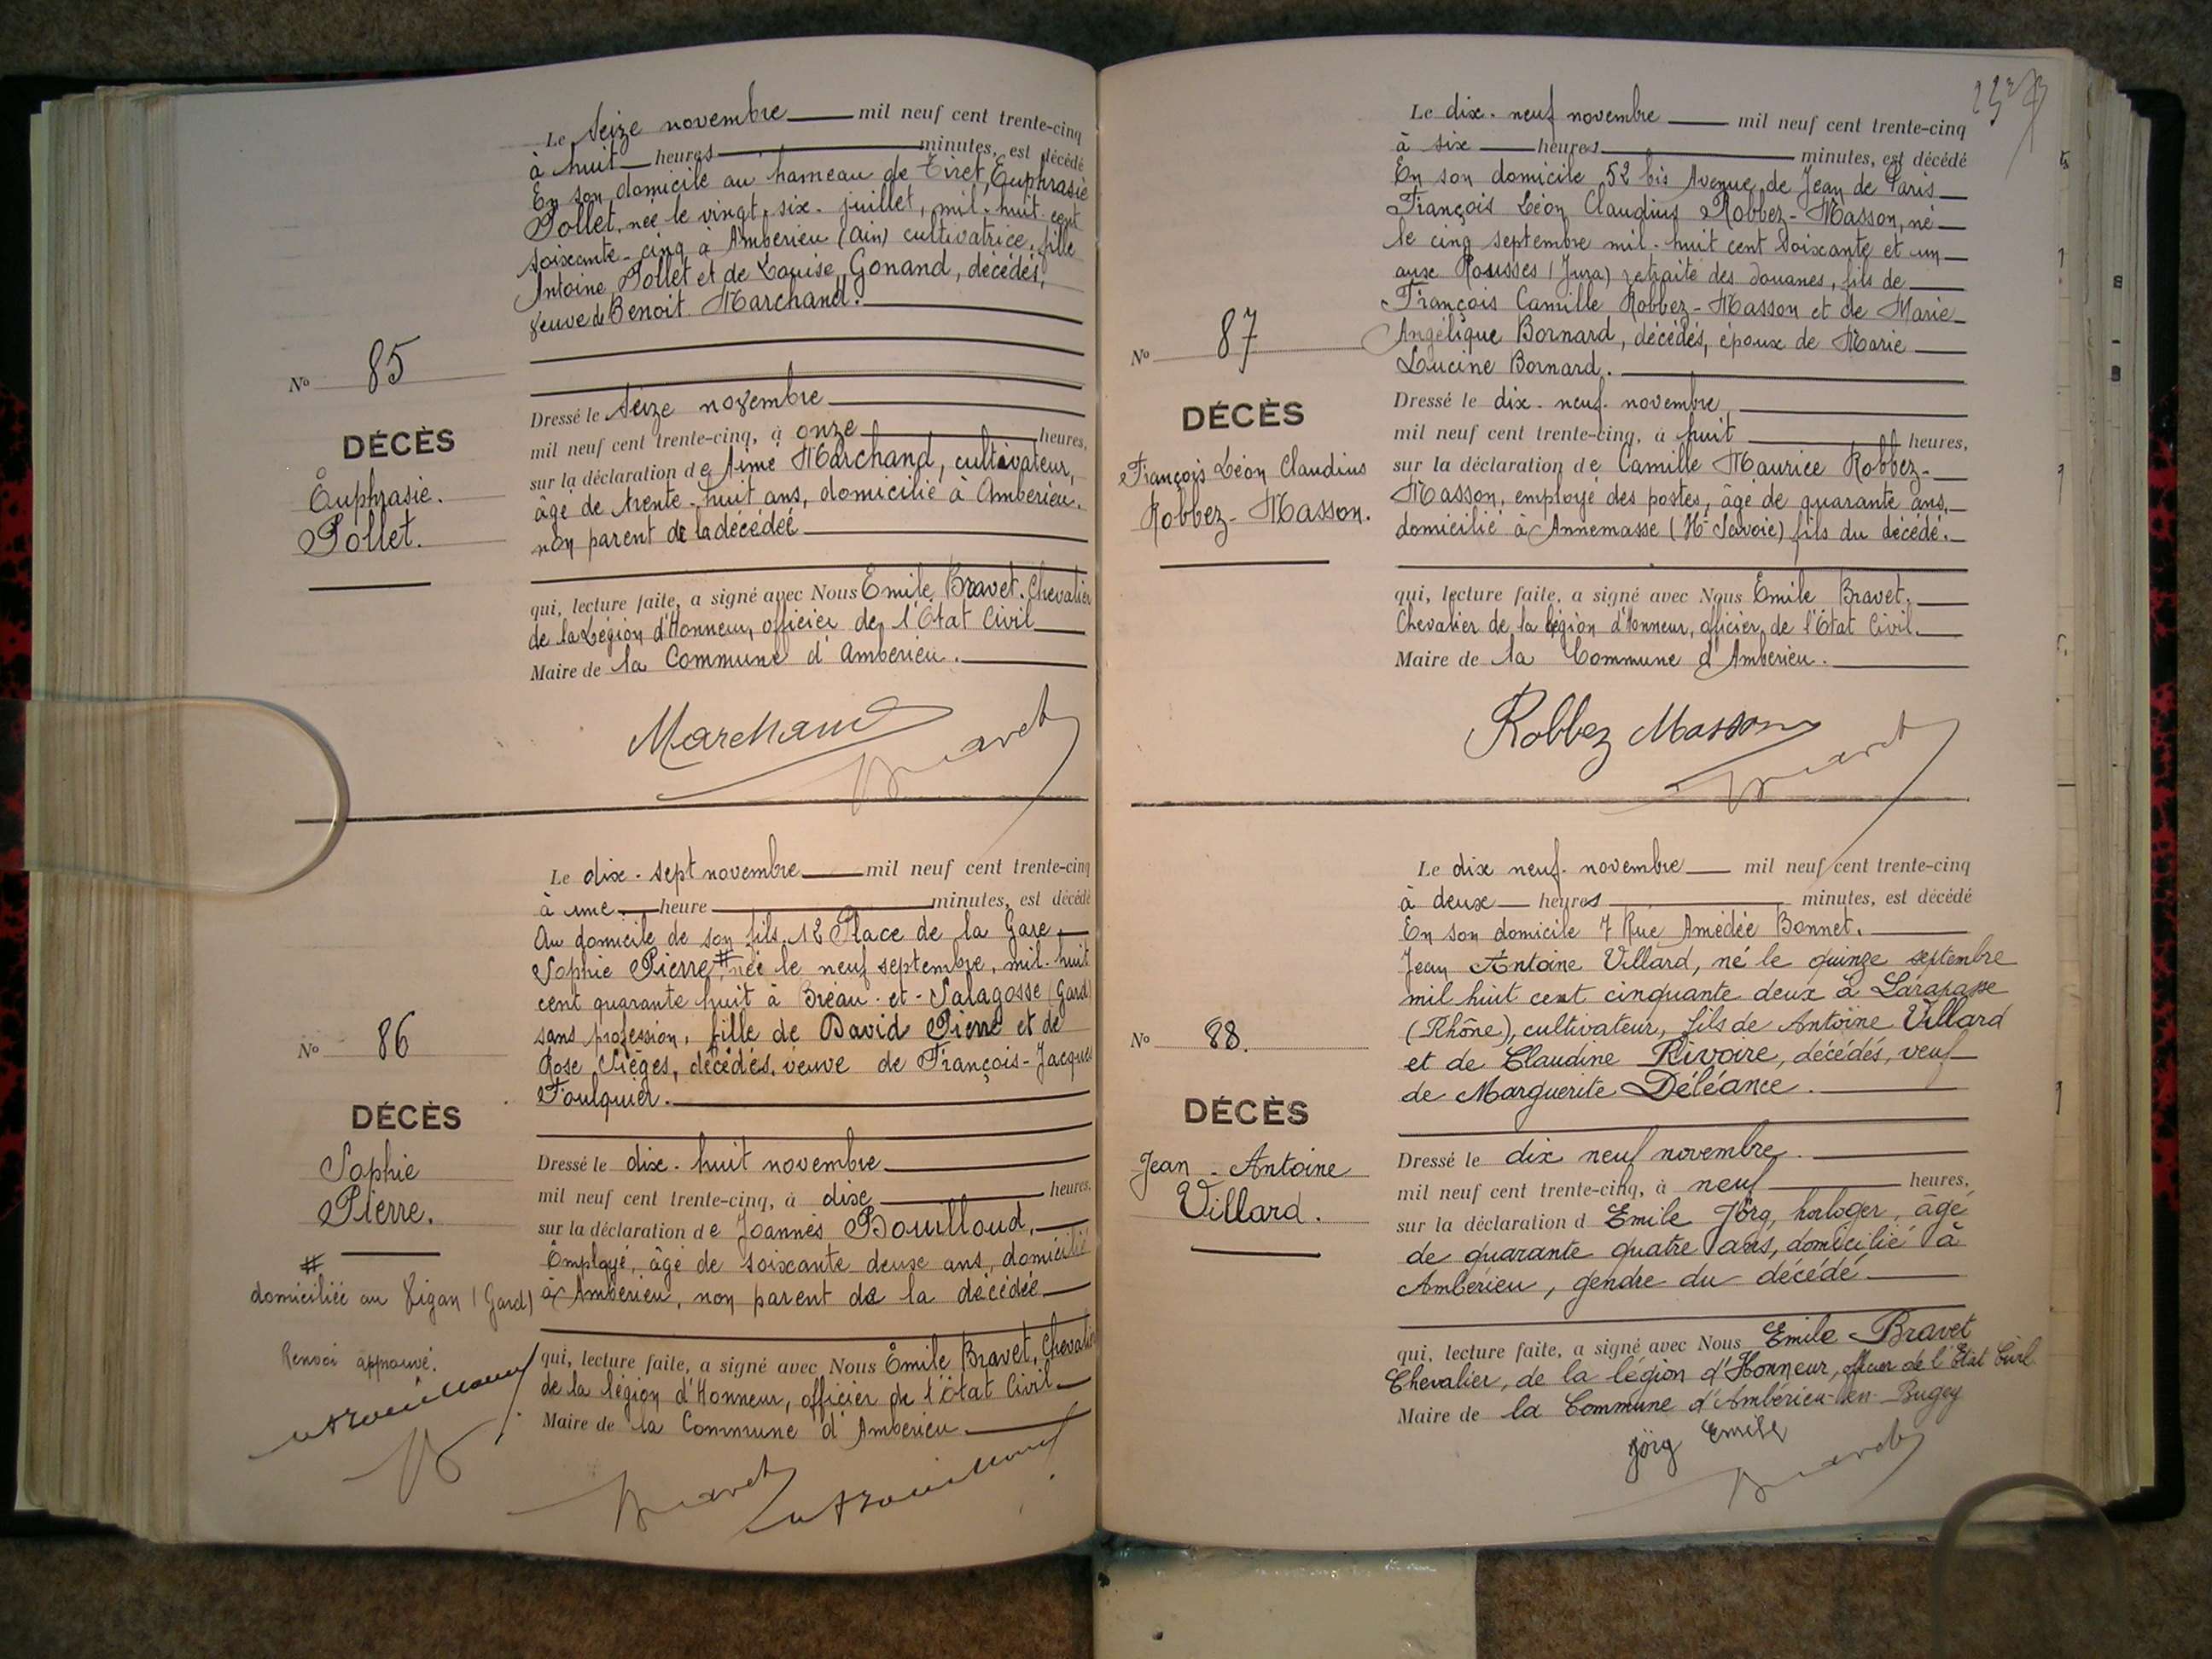 Le Seize novembre mil neuf cent trente-cinq
à huit heures minutes, est décédé
En son domicile au hameau de Tiret, Euphrasie
Pollet, née le vingt-six juillet, mil-huit cent
soixante-cinq à Ambérieu (Ain) cultivatrice, fille
Antoine Pollet et de Louise Gonand, décédés,
veuve de Benoit Marchand.
No 85
DÉCÈS
Euphrasie.
Pollet.
Dressé le seize novembre
mil neuf cent trente-cinq, à onze heures,
sur la déclaration de Aimé Marchand, cultivateur,
âgé de trente-huit ans, domicilié à Ambérieu.
non parent de la décédée
qui, lecture faite, a signé avec Nous Emile Bravet. Chevalier
de la Légion d'Honneur, officier de l'Etat Civil
Maire de la Commune d'Ambérieu.
Marchand
Bravet
Le dix-sept novembre mil neuf cent trente-cinq
à une heure minutes, est décédé
Au domicile de son fils, 12 Place de la Gare
Sophie Pierre # née le neuf septembre, mil-huit
cent quarante huit à Bréau-et-Salagosse (Gard)
sans profession, fille de David Pierre et de
Rose Cièges, décédés, veuve de François-Jacques
Foulquier.
No 86
DÉCÈS
Sophie
Pierre.
#
domiciliée au Vigan (Gard)
Renvoi approuvé.
Dressé le dix-huit novembre
mil neuf cent trente-cinq, à dix heures.
sur la déclaration de Joannès Bouilloud,
Employé, âgé de soixante deux ans, domicilié
à Ambérieu, non parent de la décédée
qui, lecture faite, a signé avec Nous Emile Bravet, Chevalier
de la légion d'Honneur, officier de l'Etat Civil
Maire de la Commune d'Ambérieu
Bravet
Le dix-neuf novembre mil neuf cent trente-cinq
à six heures minutes, est décédé
En son domicile 52 bis Avenue de Jean de Paris
François Léon Claudius Robbez-Masson, né
le cinq septembre mil-huit cent soixante et un
aux Rousses (Jura) retraité des douanes, fils de
François Camille Robbez-Masson et de Marie
Angélique Bornard, décédés, époux de Marie
Lucine Bornard.
No 87
DÉCÈS
François Léon Claudius
Robbez-Masson.
Dressé le dix-neuf novembre,
mil neuf cent trente-cinq, à huit heures,
sur la déclaration de Camille Maurice Robbez-
Masson, employé des postes, âgé de quarante ans,
domicilié à Annemasse (Hte Savoie) fils du décédé.
qui, lecture faite, a signé avec Nous Emile Bravet.
Chevalier de la légion d'honneur, officier de l'Etat Civil.
Maire de la Commune d'Ambérieu.
Robbez Masson
Bravet
Le dix neuf novembre mil neuf cent trente-cinq
à deux heures minutes, est décédé
En son domicile 7 Rue Amédée Bonnet.
Jean Antoine Villard, né le quinze septembre
mil huit cent cinquante deux à Larajasse
(Rhône), cultivateur, fils de Antoine Villard
et de Claudine Rivoire, décédés, veuf
de Marguerite Déléance.
No 88.
DÉCÈS
Jean-Antoine
Villard.
Dressé le dix neuf novembre
mil neuf cent trente-cinq, à neuf heures,
sur la déclaration d Emile Jörg, horloger, âgé
de quarante quatre ans, domicilié à
Ambérieu, gendre du décédé
qui, lecture faite, a signé avec Nous Emile Bravet
Chevalier, de la légion d'Honneur, officier de l'Etat Civil
Maire de la Commune d'Ambérieu-en-Bugey
Jörg Emile
Bravet